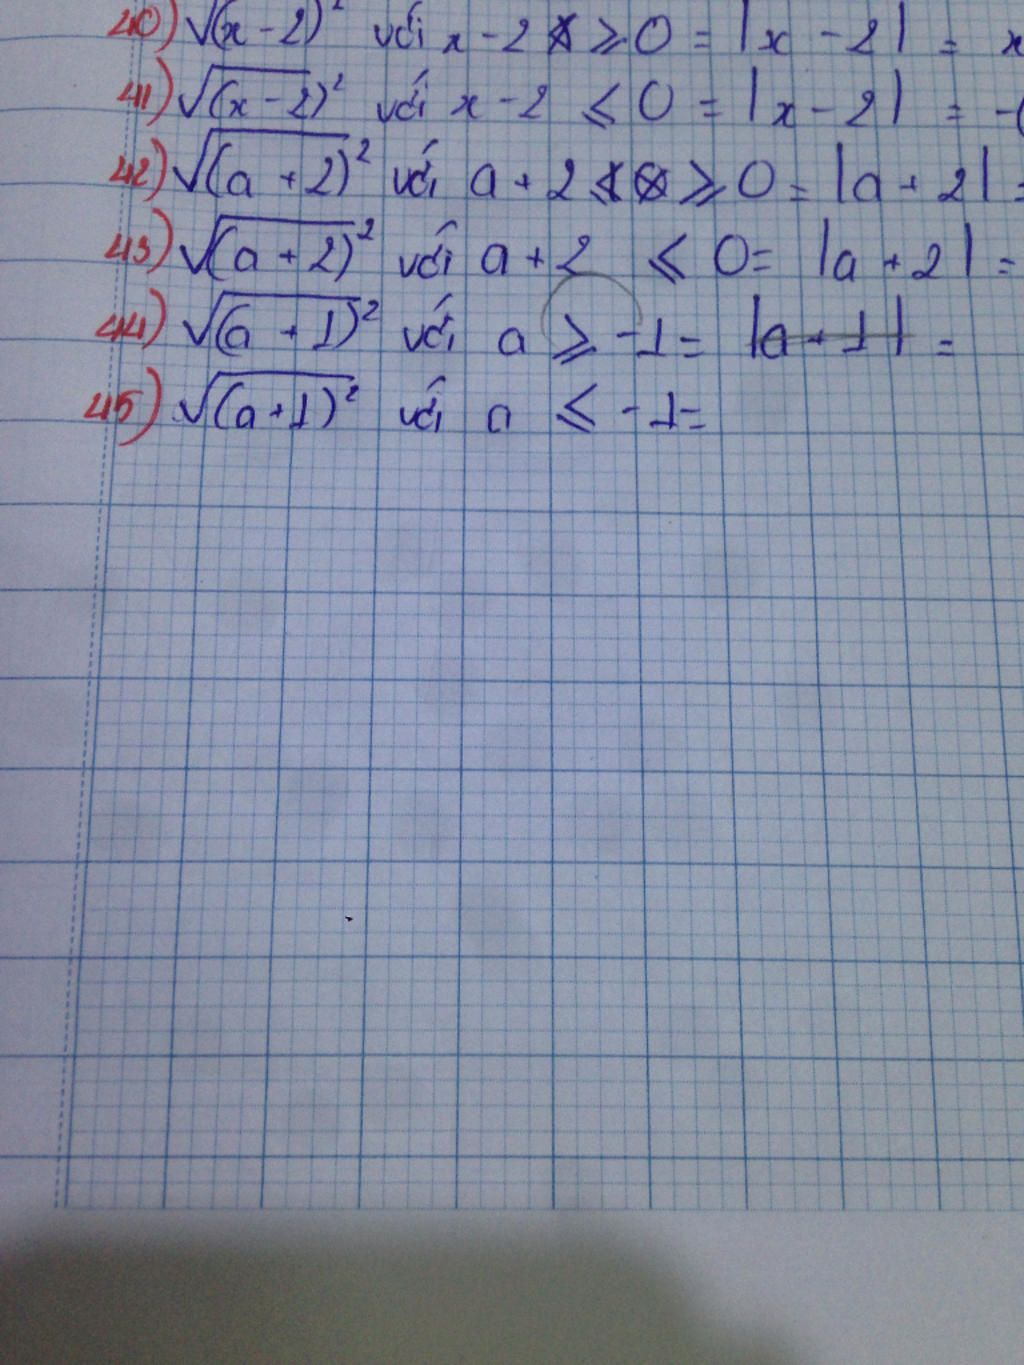 40) √(x - 2)² với x - 2 ≥ 0 = |x - 2| = x
41) √(x - 2)² với x - 2 ≤ 0 = |x - 2| = -(
42) √(a + 2)² với a + 2 ≥ 0 = |a + 2| =
43) √(a + 2)² với a + 2 ≤ 0 = |a + 2| =
44) √(a + 1)² với a ≥ -1 = |a + 1| =
45) √(a + 1)² với a ≤ -1 =